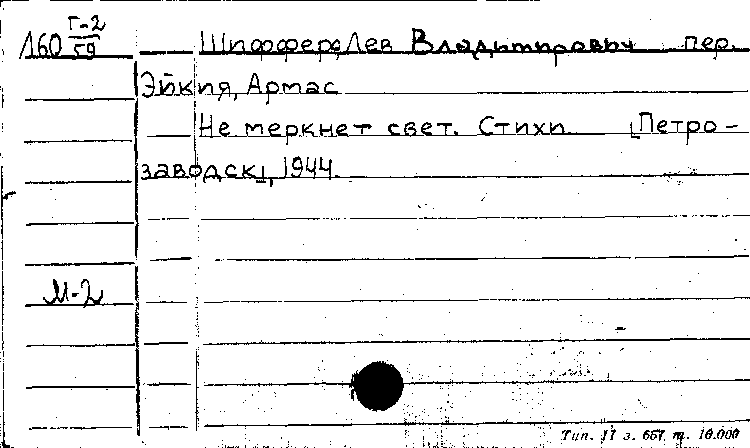 Л60 Г-2/59
Шифферс, Лев Владимирович пер.
Эйкия, Армас
Не меркнет свет. Стихи. [Петро-
заводск], 1944.
М-2
Тип. 17 з. 667 т. 10.000